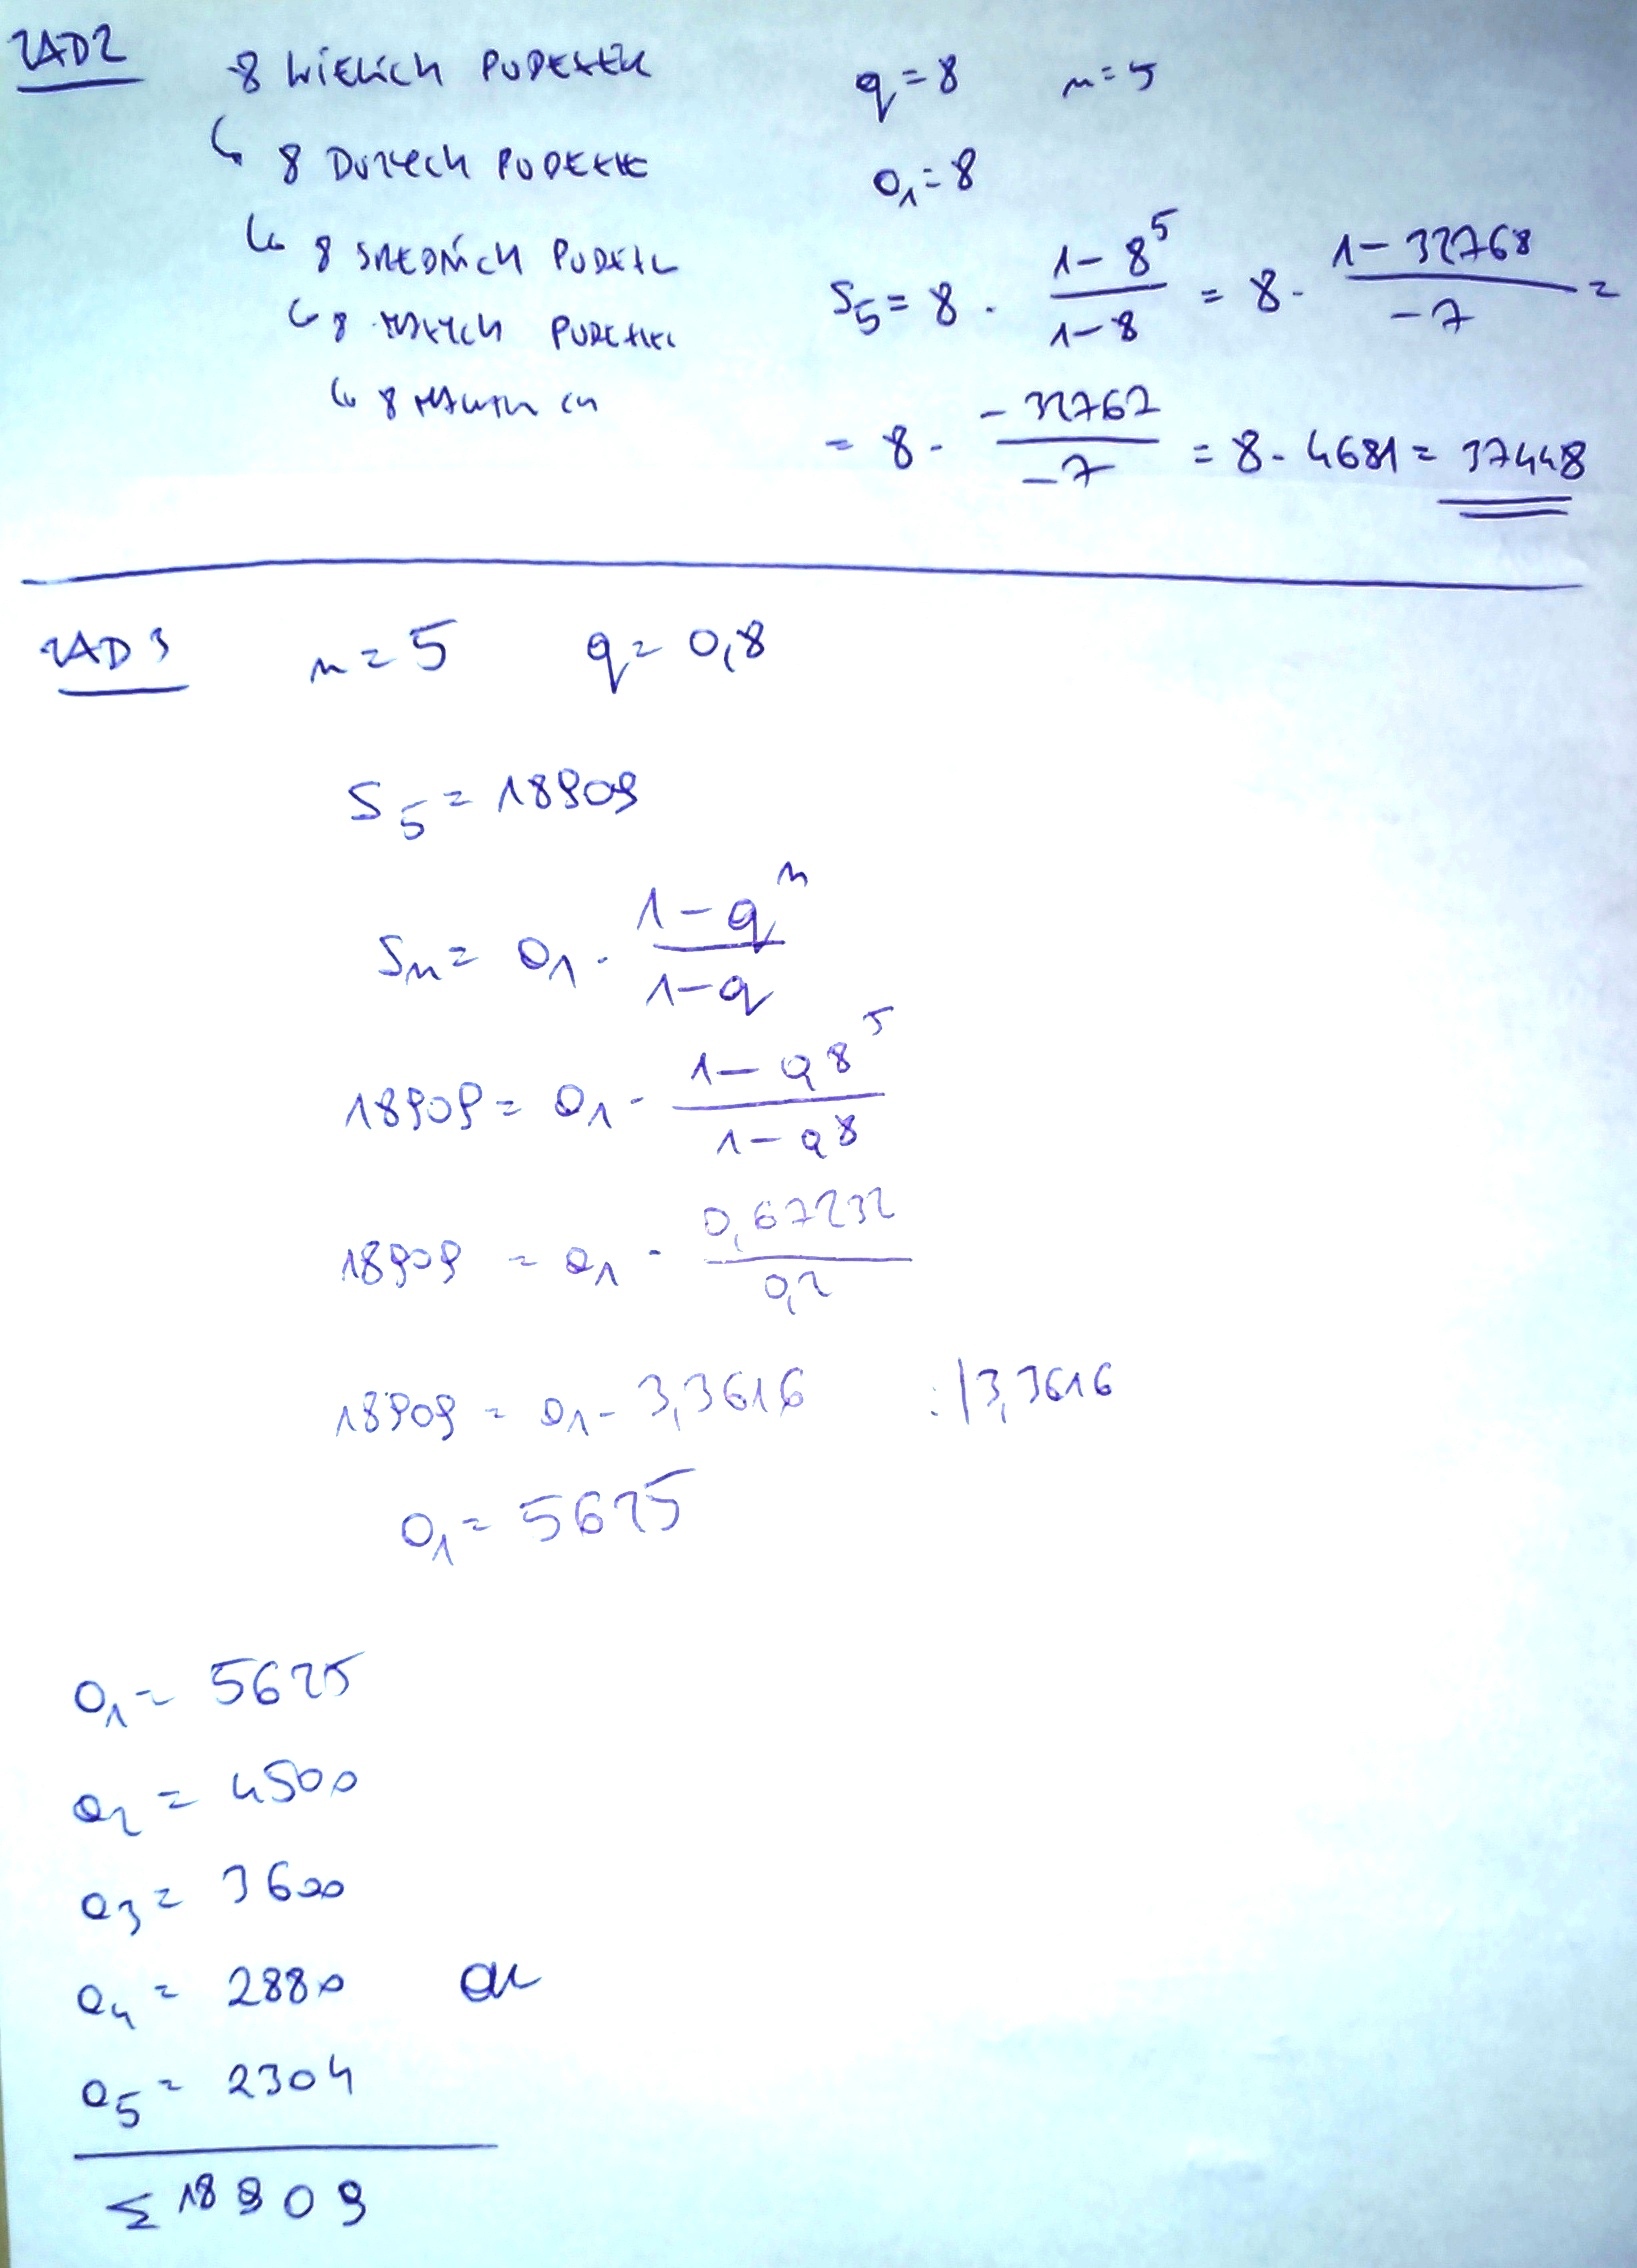 ZAD2
8 WIELKICH PUDEŁEK
↳ 8 DUŻYCH PUDEŁEK
↳ 8 ŚREDNICH PUDEŁ
↳ 8 MAŁYCH PUDEŁEK
↳ 8
q=8 n=5
a₁=8
S₅ = 8 · (1-8⁵)/(1-8) = 8 · (1-32768)/(-7) =
= 8 · (-32767)/(-7) = 8 · 4681 = 37448
ZAD 3 n=5 q=0,8
S₅ = 18909
Sn = a₁ · (1-qⁿ)/(1-q)
18909 = a₁ · (1-0,8⁵)/(1-0,8)
18909 = a₁ · 0,67232/0,2
18909 = a₁ · 3,3616 :|3,3616
a₁ = 5625
a₁ = 5625
a₂ = 4500
a₃ = 3600
a₄ = 2880 OK
a₅ = 2304
Σ 18909